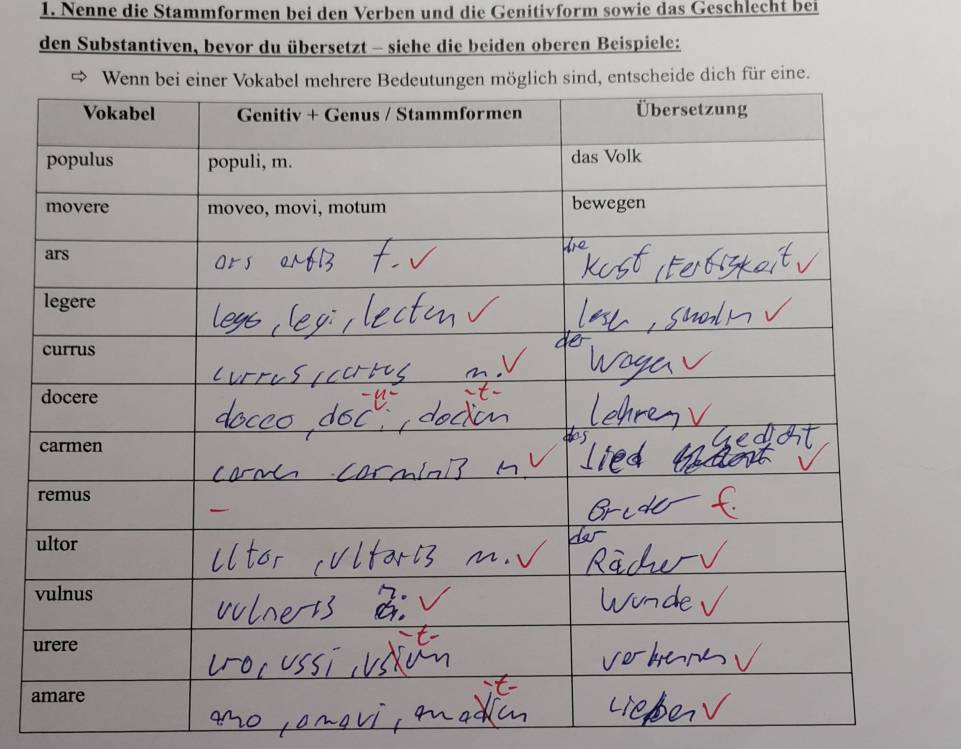 1. Nenne die Stammformen bei den Verben und die Genitivform sowie das Geschlecht bei
den Substantiven, bevor du übersetzt – siehe die beiden oberen Beispiele:
⇨ Wenn bei einer Vokabel mehrere Bedeutungen möglich sind, entscheide dich für eine.
Vokabel Genitiv + Genus / Stammformen Übersetzung
populus populi, m. das Volk
movere moveo, movi, motum bewegen
ars ars artis f. ✓ die Kust, Fertigkeit ✓
legere lego, legi, lectum ✓ lesen, ✓
currus currus, currus m. ✓ der Wagen ✓
docere doceo, doc -u- i, docium -t- lehren ✓
carmen carmen carminis n ✓ das Lied Gedicht ✓
remus – Bruder f.
ultor ultor, ultoris m. ✓ der Rächer ✓
vulnus vulneris n. ✓ Wunde ✓
urere uro, ussi, usium -t- verbrennen ✓
amare amo, amavi, amadium -t- lieben ✓